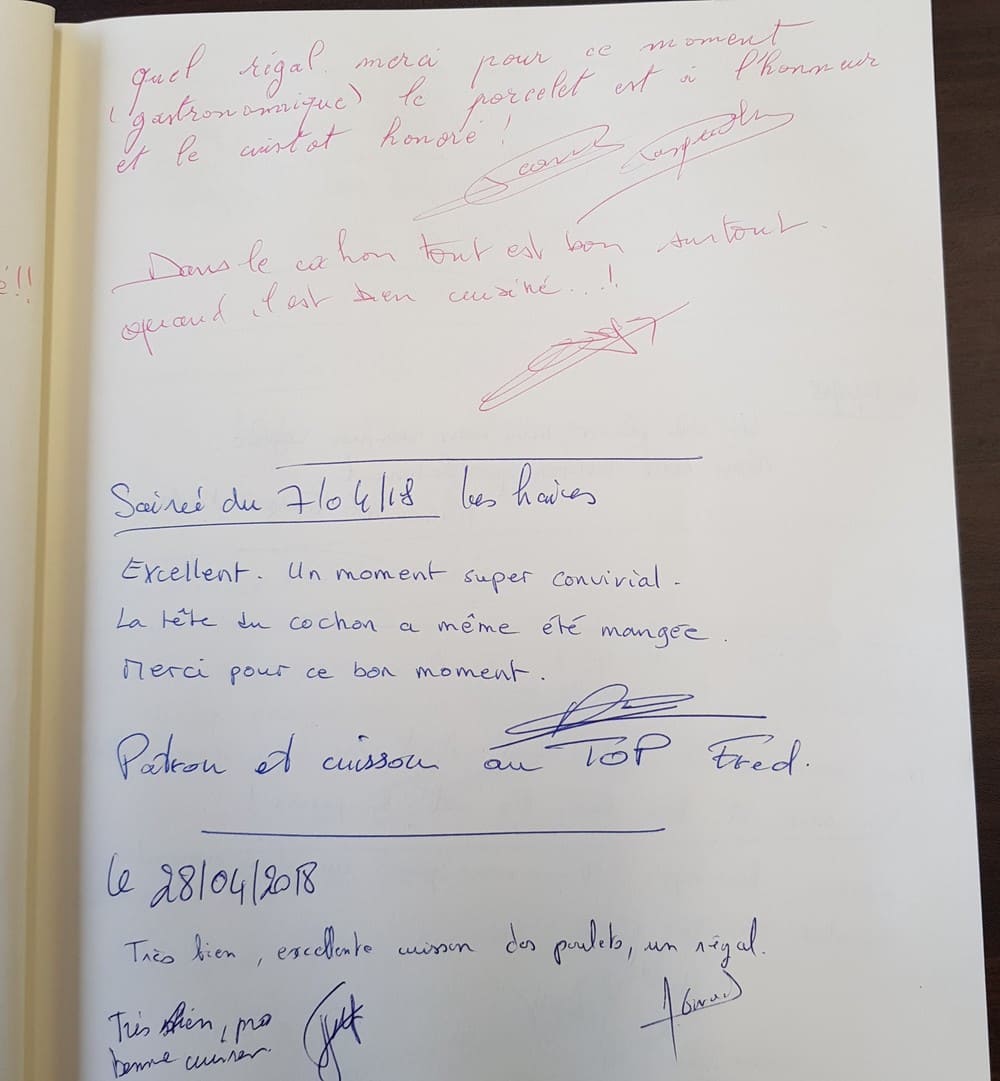 quel régal merci pour ce moment
(gastronomique) le porcelet est à l'honneur
et le cuistot honoré !
Dans le cochon tout est bon surtout.
quand il est bien cuisiné...!
é!!
Soireé du 7/04/18 Les haires
Excellent. Un moment super convivial.
La tête du cochon a même été mangée.
Merci pour ce bon moment.
Patron et cuisson au TOP Fred.
Le 28/04/2018
Très bien, excellente cuisson des poulets, un régal.
Très bien, pro
bonne cuisson.